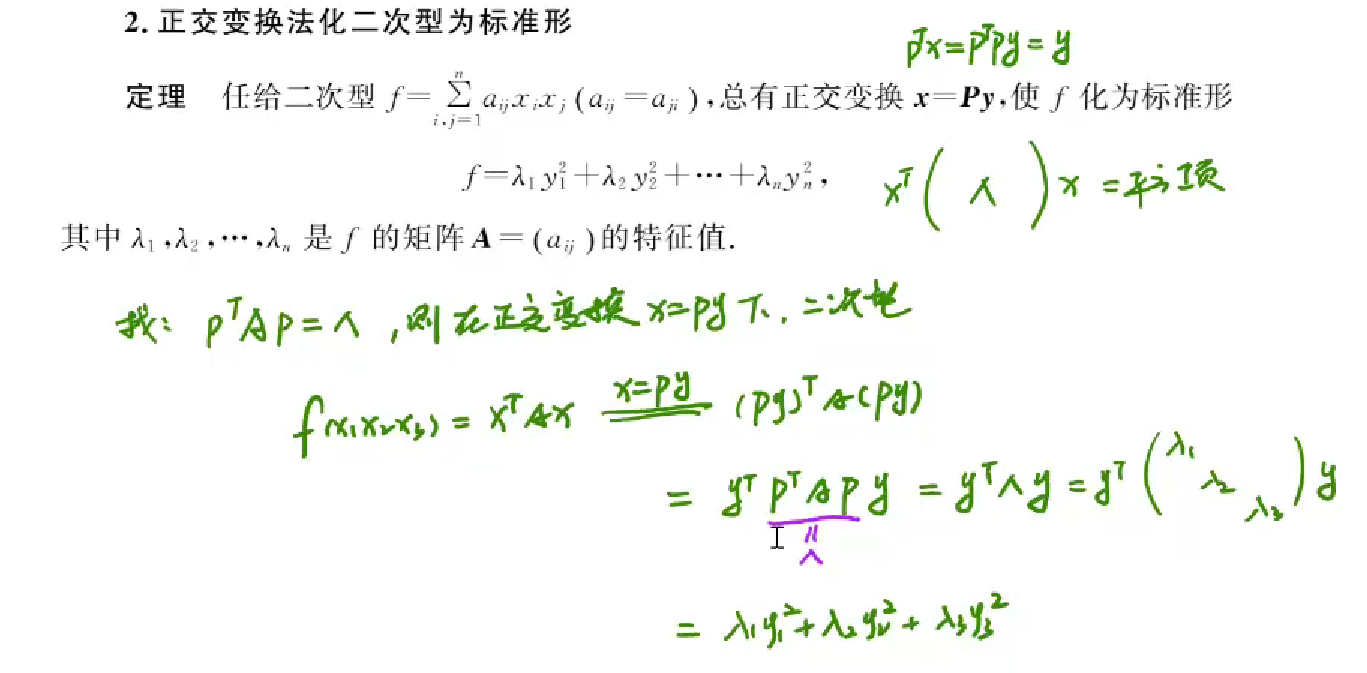 2. 正交变换法化二次型为标准形
pᵀx=pᵀpy=y
定理 任给二次型 f=∑ⁿᵢ,ⱼ₌₁ aᵢⱼxᵢxⱼ(aᵢⱼ=aⱼᵢ),总有正交变换 x=Py,使 f 化为标准形
f=λ₁y₁²+λ₂y₂²+⋯+λₙyₙ²,
xᵀ(Λ)x=平方项
其中 λ₁,λ₂,⋯,λₙ 是 f 的矩阵 A=(aᵢⱼ)的特征值.
找: pᵀAp=Λ,则在正交变换x=py下,二次型
f(x₁x₂x₃)=xᵀAx x=py (py)ᵀA(py)
=yᵀpᵀApy=yᵀΛy=yᵀ(λ₁ λ₂ λ₃)y
=
Λ
=λ₁y₁²+λ₂y₂²+λ₃y₃²